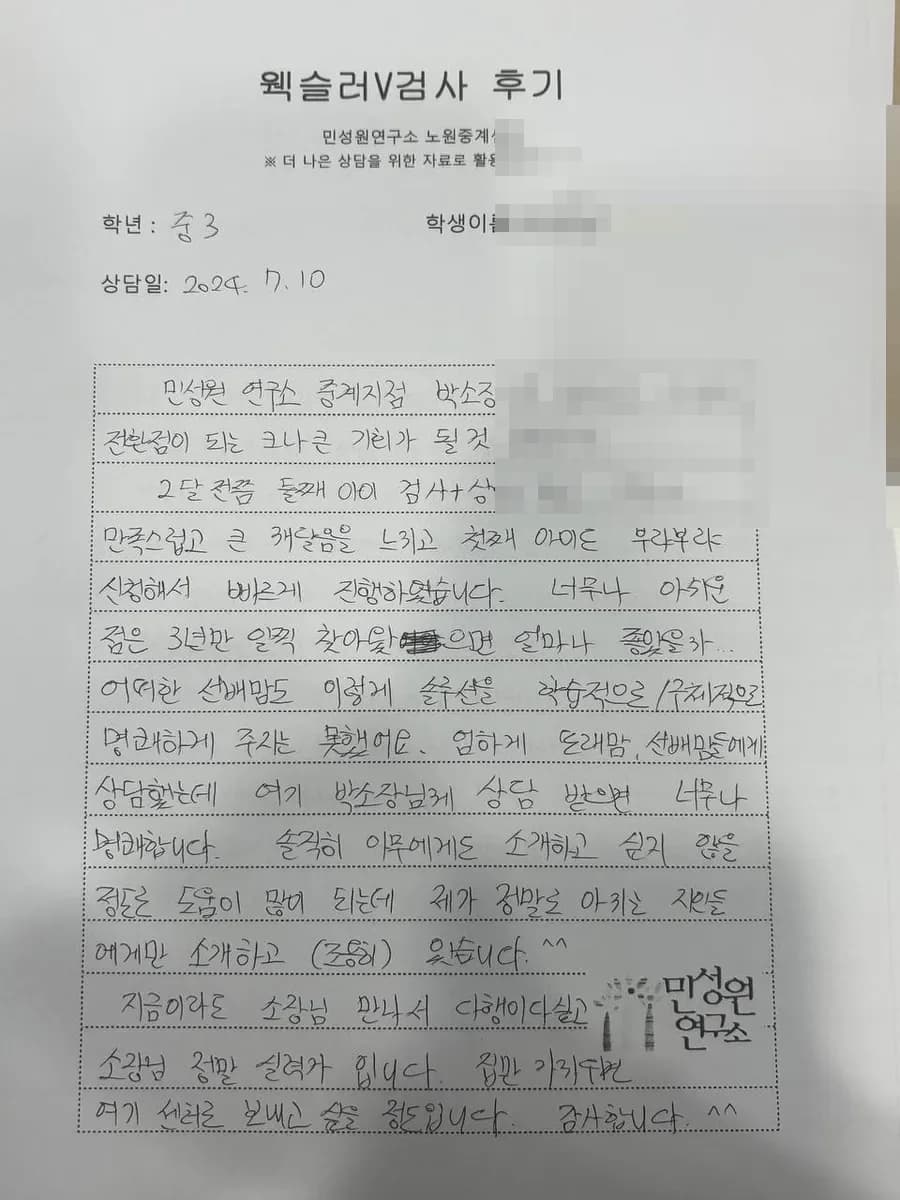 웩슬러V검사 후기
민성원연구소 노원중계
※ 더 나은 상담을 위한 자료로 활용
학년 : 중3
학생이름
상담일: 2024. 7.10
민성원 연구소 중계지점 박소장
전환점이 되는 크나큰 기회가 될 것
2달 전쯤 둘째 아이 검사+상
만족스럽고 큰 깨달음을 느끼고 첫째 아이도 부랴부랴
신청해서 빠르게 진행하였습니다. 너무나 아쉬운
점은 3년만 일찍 찾아왔으면 얼마나 좋았을까...
어떠한 선배맘도 이렇게 솔루션을 학습적으로/구체적으로
명쾌하게 주지는 못했어요. 엄하게 또래맘, 선배맘들에게
상담했는데 여기 박소장님께 상담 받으면 너무나
명쾌합니다. 솔직히 아무에게도 소개하고 싶지 않을
정도로 도움이 많이 되는데 제가 정말로 아끼는 지인들
에게만 소개하고 (조용히) 있습니다. ^^
지금이라도 소장님 만나서 다행이다싶고
소장님 정말 실력가 입니다. 집만 가까우면
여기 센터로 보내고 싶을 정도입니다. 감사합니다. ^^
민성원
연구소